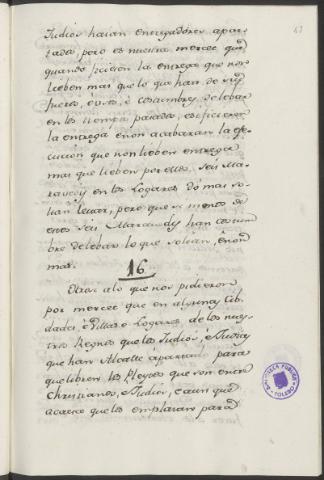 67
Judios haian entregadores apar-
tados, pero es nuestra merced que
quando ficieren la entrega que non
lieben mas que lo que han de
fuero, ò uso, è costumbre de lebar
en los tiempos pasados, è si ficieren
la entrega è non acabaran la ese-
cucion que non lieben entrega
mas que lieben por ellos, seis Ma-
ravedis en los Logares dò mas so-
lian levar, pero que si menos de
estos seis Maravedis han costum-
bre de lebar lo que solian, è non
mas.
16
Otrosi a lo que nos pidieron
por merced que en algunas Cib-
dades, è Villas è Logares de los nues-
tros Regnos que los Judios, è Moros
que han Alcalle apartado para
que libren los Pleytos que son entre
Christianos, è Judios, è aun que
acaesce que los emplazan para
BIBLIOTECA PUBLICA
TOLEDO